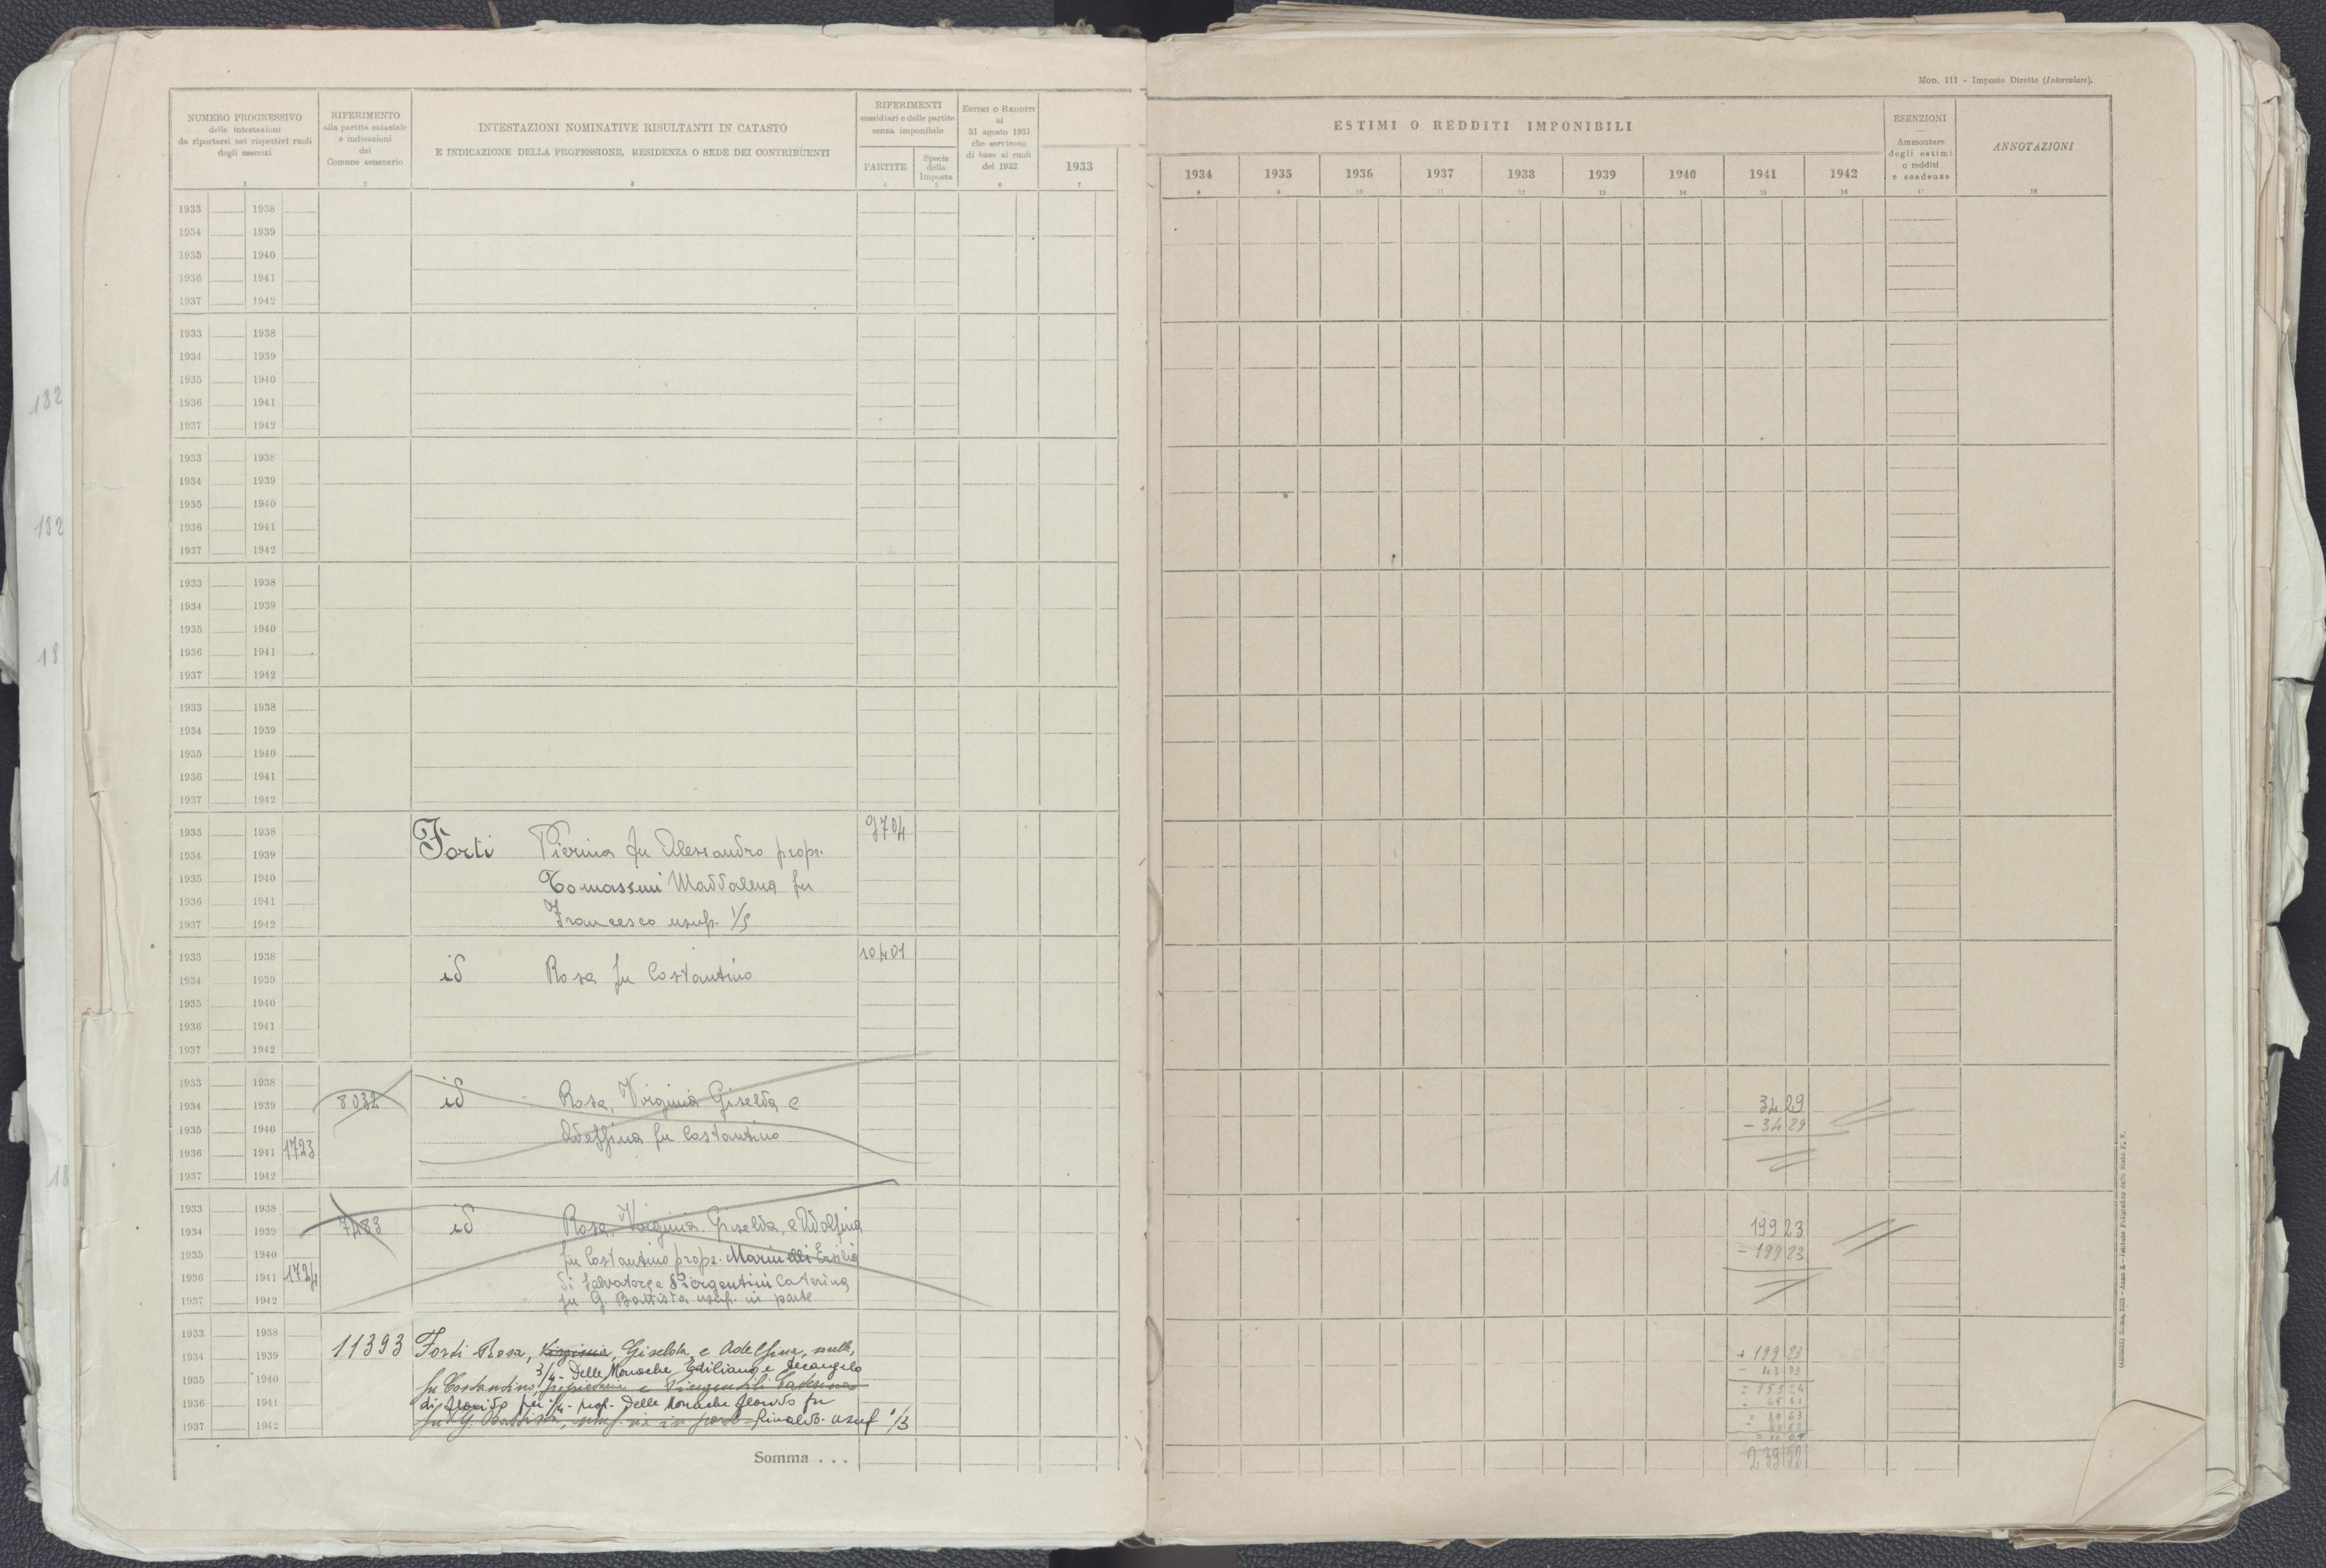 Mod. 111 - Imposte Dirette (Intercalare).
NUMERO PROGRESSIVO
delle intestazioni
da riportarsi nei rispettivi ruoli
degli esercizi
1
RIFERIMENTO
alla partita catastale
e indicazioni
del
Comune censuario
2
INTESTAZIONI NOMINATIVE RISULTANTI IN CATASTO
E INDICAZIONE DELLA PROFESSIONE, RESIDENZA O SEDE DEI CONTRIBUENTI
3
RIFERIMENTI
sussidiari e delle partite
senza imponibile
PARTITE
4
Specie
della
Imposta
5
ESTIMI O REDDITI
al
31 agosto 1931
che servirono
di base ai ruoli
del 1932
6
1933
7
ESTIMI O REDDITI IMPONIBILI
1934 1935 1936 1937 1938 1939 1940 1941 1942
8 9 10 11 12 13 14 15 16
ESENZIONI
Ammontare
degli estimi
o redditi
e scadenze
17
ANNOTAZIONI
18
1933 1938
1934 1939
1935 1940
1936 1941
1937 1942
1933 1938
1934 1939
1935 1940
1936 1941
1937 1942
1933 1938
1934 1939
1935 1940
1936 1941
1937 1942
1933 1938
1934 1939
1935 1940
1936 1941
1937 1942
1933 1938
1934 1939
1935 1940
1936 1941
1937 1942
1933 1938 9704
1934 1939 Forti Pierina fu Alessandro propr.
1935 1940 Tomassini Maddalena fu
1936 1941
1937 1942 Francesco usuf. 1/3
1933 1938 10401
1934 1939 id Rosa fu Costantino
1935 1940
1936 1941
1937 1942
1933 1938
1934 1939 8032 id Rosa, Virginia Giselda e 34 29
1935 1940 Adelfina fu Costantino - 34 29
1936 1941 1723
1937 1942
1933 1938
1934 1939 7483 id Rosa, Virginia, Giselda, e Adolfina 199 23
1935 1940 fu Costantino propr. Marinelli Ersilia - 199 23
1936 1941 1724 di Salvatore e Piergentini Caterina
1937 1942 fu G. Battista usuf. in parte
1933 1938
1934 1939 11393 Forti Rosa, Virginia, Giselda, e Adelfina, + 199 23
3/4 - Delle Monache Ediliano e Arcangelo - 43 99
1935 1940 fu Costantino, proprietarie e Piergentili Caterina = 155 24
1936 1941 di per 1/4 - prop. Delle Monache fu
1937 1942 fu G. Battista, in parte Rinaldo - usuf 1/3
Somma . . . 239 52
182
182
18
18